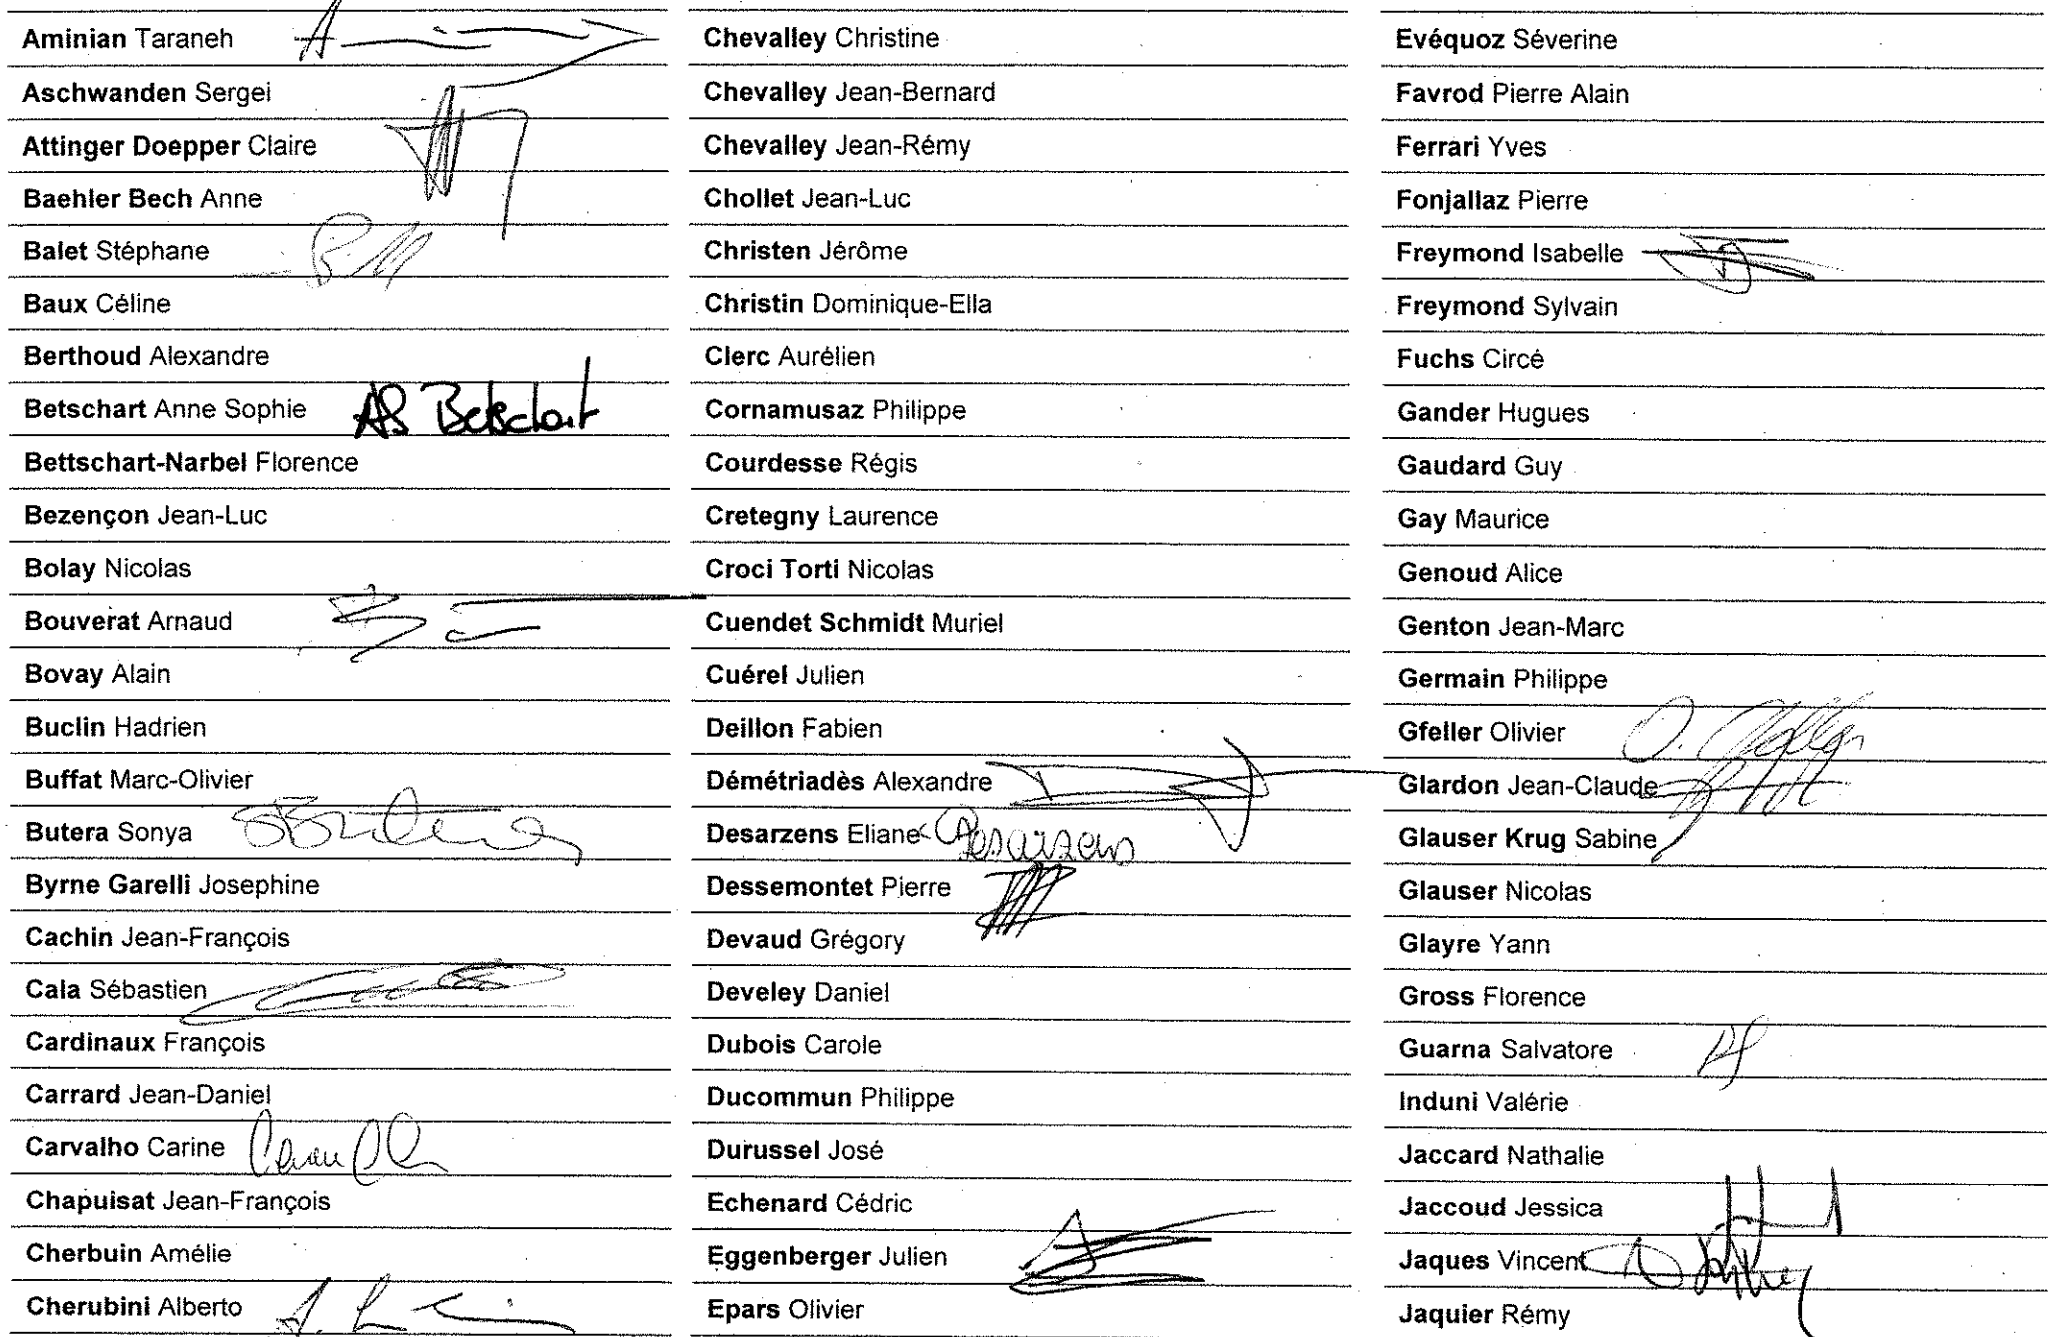 Aminian Taraneh
Aschwanden Sergei
Attinger Doepper Claire
Baehler Bech Anne
Balet Stéphane
Baux Céline
Berthoud Alexandre
Betschart Anne Sophie AS Betschart
Bettschart-Narbel Florence
Bezençon Jean-Luc
Bolay Nicolas
Bouverat Arnaud
Bovay Alain
Buclin Hadrien
Buffat Marc-Olivier
Butera Sonya
Byrne Garelli Josephine
Cachin Jean-François
Cala Sébastien
Cardinaux François
Carrard Jean-Daniel
Carvalho Carine
Chapuisat Jean-François
Cherbuin Amélie
Cherubini Alberto
Chevalley Christine
Chevalley Jean-Bernard
Chevalley Jean-Rémy
Chollet Jean-Luc
Christen Jérôme
Christin Dominique-Ella
Clerc Aurélien
Cornamusaz Philippe
Courdesse Régis
Cretegny Laurence
Croci Torti Nicolas
Cuendet Schmidt Muriel
Cuérel Julien
Deillon Fabien
Démétriadès Alexandre
Desarzens Eliane Desarzens
Dessemontet Pierre
Devaud Grégory
Develey Daniel
Dubois Carole
Ducommun Philippe
Durussel José
Echenard Cédric
Eggenberger Julien
Epars Olivier
Evéquoz Séverine
Favrod Pierre Alain
Ferrari Yves
Fonjallaz Pierre
Freymond Isabelle
Freymond Sylvain
Fuchs Circé
Gander Hugues
Gaudard Guy
Gay Maurice
Genoud Alice
Genton Jean-Marc
Germain Philippe
Gfeller Olivier O. Gfeller
Glardon Jean-Claude
Glauser Krug Sabine
Glauser Nicolas
Glayre Yann
Gross Florence
Guarna Salvatore
Induni Valérie
Jaccard Nathalie
Jaccoud Jessica
Jaques Vincent
Jaquier Rémy